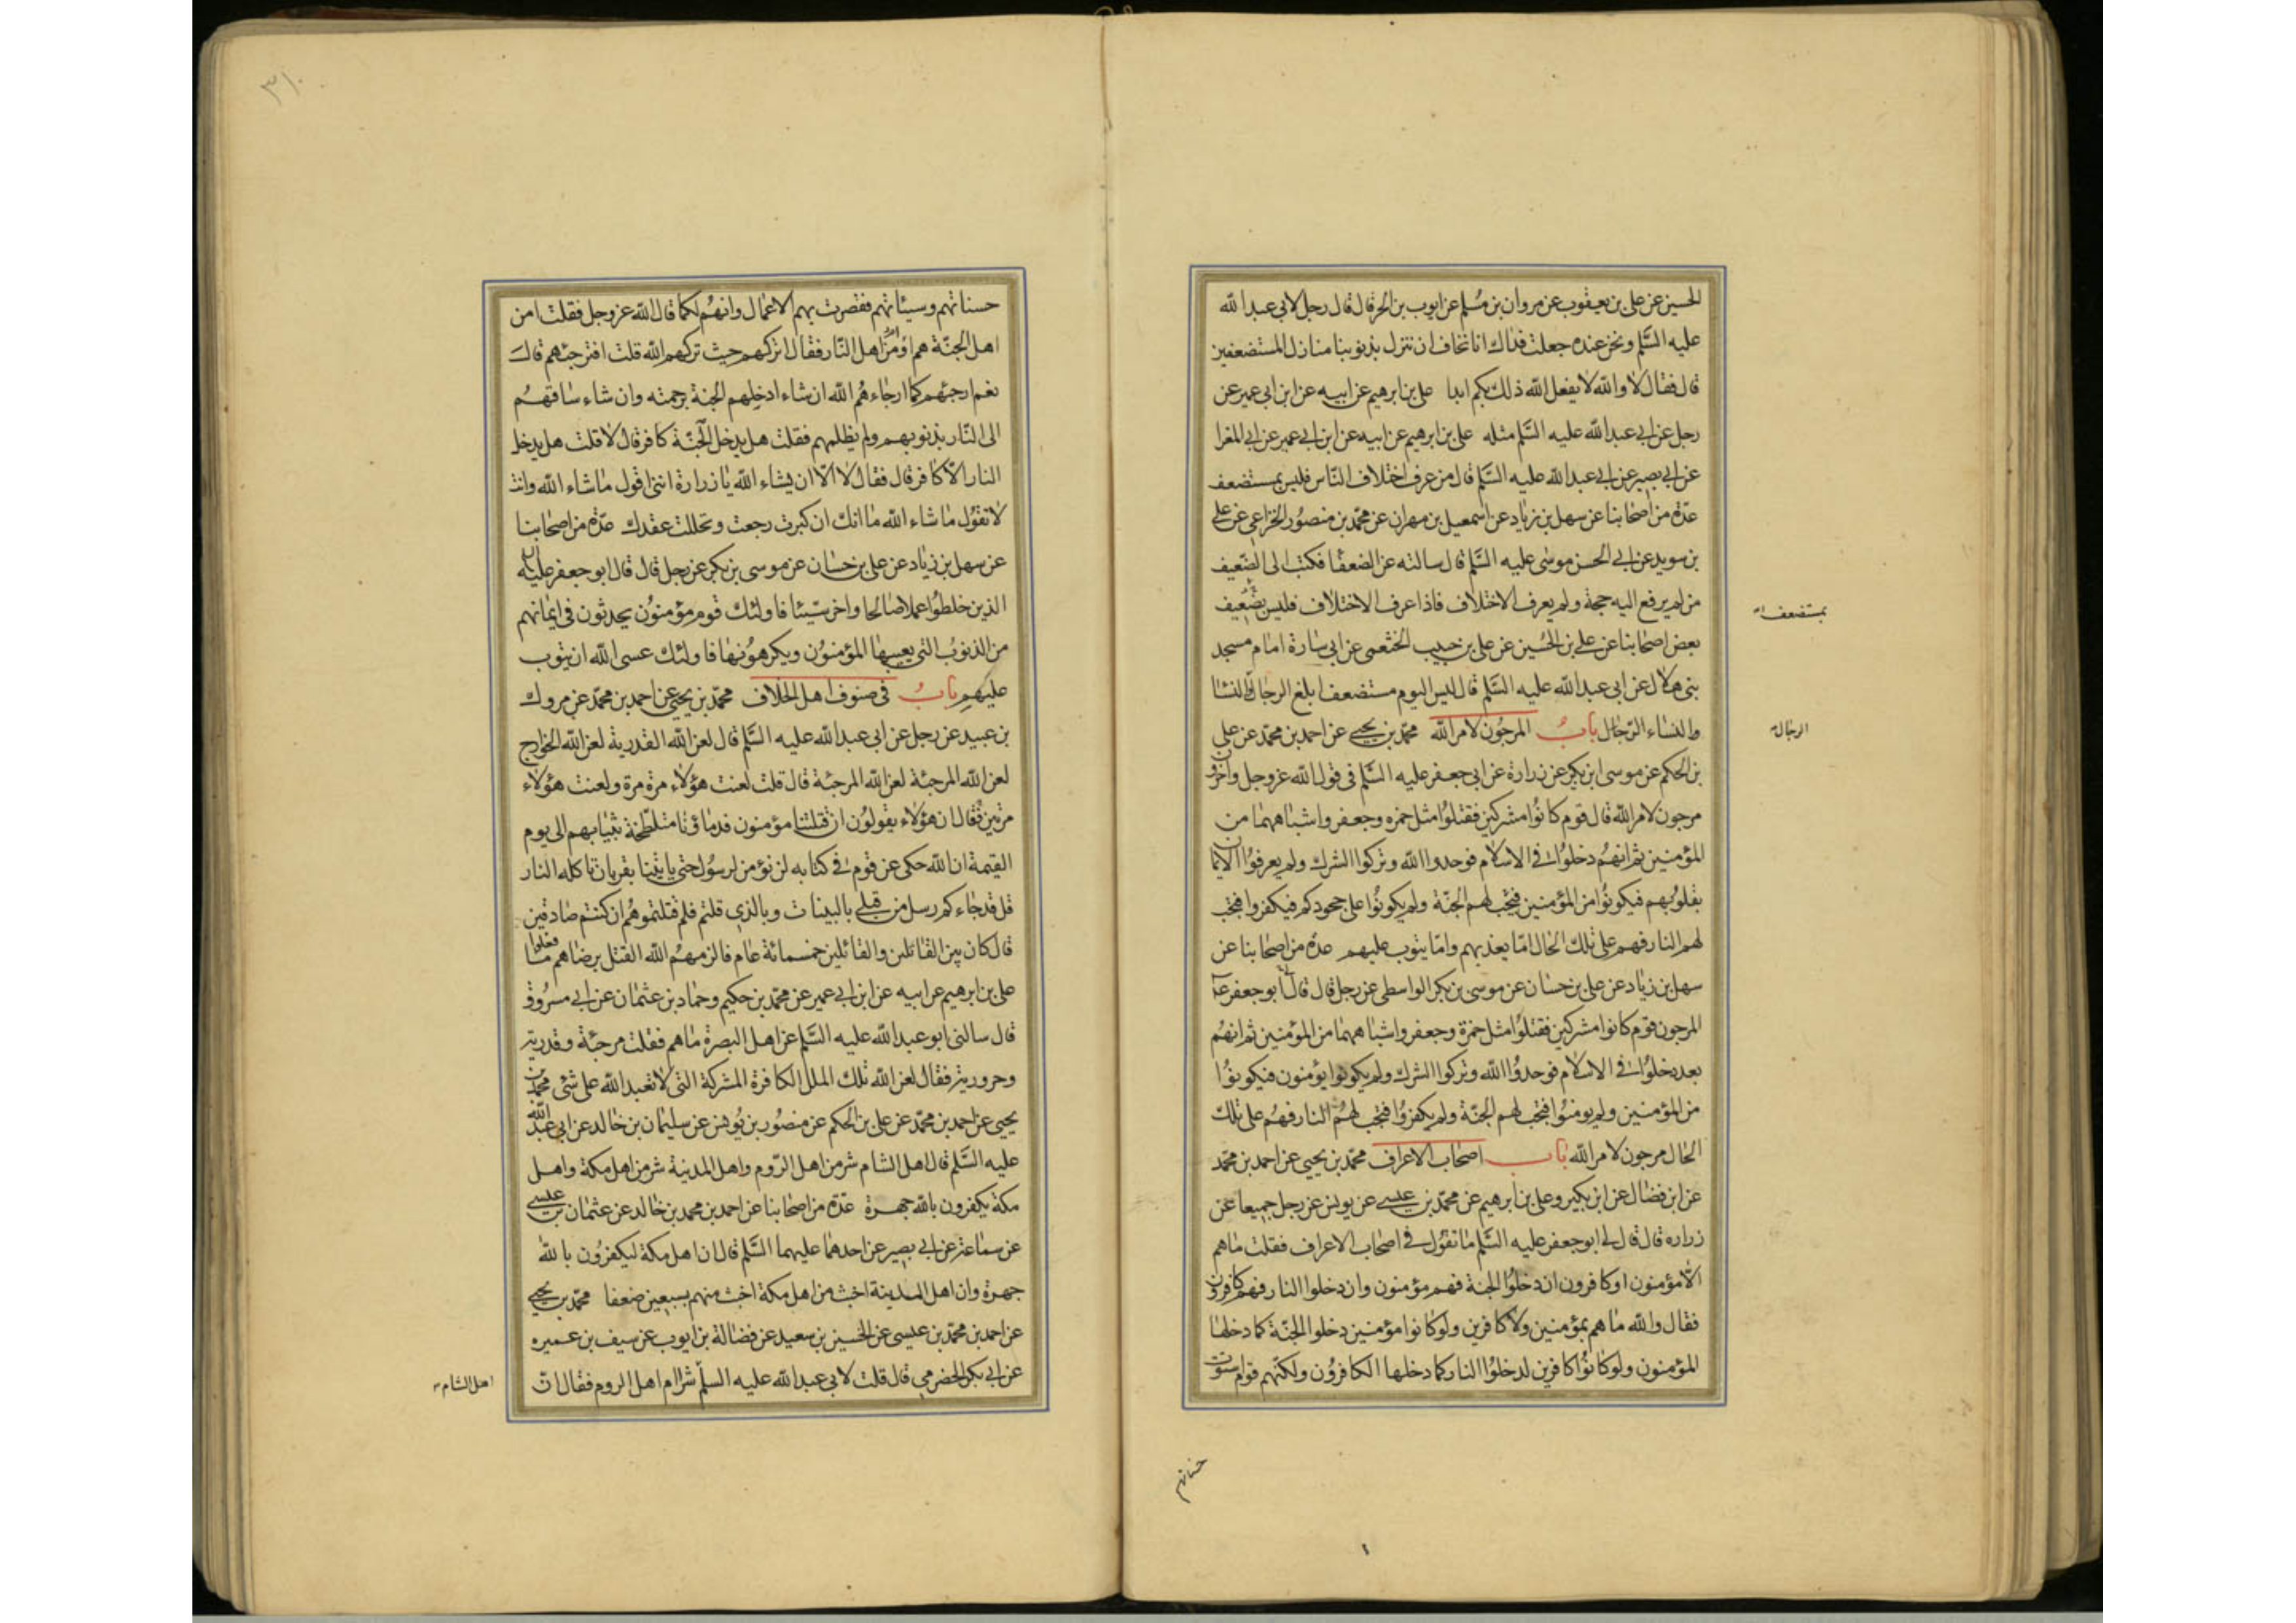 الحسين عن على بن يعقوب عن مروان بن مسلم عن ايوب بن الحر قال قال رجل لابى عبد الله
عليه السلم ونحن عنده جعلت فداك انا نخاف ان ننزل بذنوبنا منازل المستضعفين
قال فقال لا والله لا يفعل الله ذلك بكم ابدا على بن ابرهيم عن ابيه عن ابن ابى عمير عن
رجل عن ابى عبد الله عليه السلم مثله على بن ابرهيم عن ابيه عن ابن ابى عمير عن ابى المغرا
عن ابى بصير عن ابى عبد الله عليه السلم قال من عرف اختلاف الناس فليس بمستضعف
عدة من اصحابنا عن سهل بن زياد عن اسمعيل بن مهران عن محمد بن منصور الخزاعى عن على
بن سويد عن ابى الحسن موسى عليه السلم قال سالته عن الضعفا فكتب الى الضعيف
من لم يرفع اليه حجة ولم يعرف الاختلاف فاذا عرف الاختلاف فليس بضعيف
بمستضعف
بعض اصحابنا عن على بن الحسين عن على بن حبيب الخثعمى عن ابى سارة امام مسجد
بنى هلال عن ابى عبد الله عليه السلم قال ليس اليوم مستضعف ابلغ الرجال والنسا
والنساء الرجال باب المرجون لامر الله محمد بن يحيى عن احمد بن محمد عن على
الرجال
بن الحكم عن موسى ابن بكر عن زرارة عن ابى جعفر عليه السلم فى قول الله عز وجل واخرون
مرجون لامر الله قال قوم كانوا مشركين فقتلوا مثل حمزه وجعفر واشباههما من
المؤمنين ثم انهم دخلوا فى الاسلام فوحدوا الله وتركوا الشرك ولم يعرفوا الايمان
بقلوبهم فيكونوا من المؤمنين فيجب لهم الجنة ولم يكونوا على جحودكم فيكفروا فيجب
لهم النار فهم على تلك الحال اما يعذبهم واما يتوب عليهم عدة من اصحابنا عن
سهل بن زياد عن على بن حسان عن موسى بن بكر الواسطى عن رجل قال قال ابو جعفر ع
المرجون قوم كانوا مشركين فقتلوا مثل حمزة وجعفر واشباههما من المؤمنين ثم انهم
بعد دخلوا فى الاسلام فوحدوا الله وتركوا الشرك ولم يكونوا يؤمنون فيكونوا
من المؤمنين ولم يومنوا فيجب لهم الجنة ولم يكفروا فيجب لهم النار فهم على تلك
الحال مرجون لامر الله باب اصحاب الاعراف محمد بن يحيى عن احمد بن محمد
عن ابن فضال عن ابن بكير وعلى بن ابرهيم عن محمد بن عيسى عن يونس عن رجل جميعا عن
زراره قال قال لى ابو جعفر عليه السلم ما تقول فى اصحاب الاعراف فقلت ما هم
الا مؤمنون او كافرون ان دخلوا الجنة فهم مؤمنون وان دخلوا النار فهم كافرون
فقال والله ما هم بمؤمنين ولا كافرين ولو كانوا مؤمنين دخلوا الجنة كما دخلها
المؤمنون ولو كانوا كافرين لدخلوا النار كما دخلها الكافرون ولكنهم قوام ستوت
حسناتهم
٣١٠
حسناتهم وسيئاتهم فقصرت بهم الاعمال وانهم لكما قال الله عز وجل فقلت امن
اهل الجنة هم او من اهل النار فقال اتركهم حيث تركهم الله قلت افترجئهم قال
نعم ارجئهم كما ارجاءهم الله ان شاء ادخلهم الجنة برحمته وان شاء ساقهم
الى النار بذنوبهم ولم يظلمهم فقلت هل يدخل الجنة كافر قال لا قلت هل يدخل
النار الا كافر قال فقال لا الا ان يشاء الله يا زرارة اننى اقول ما شاء الله وانت
لا تقول ما شاء الله ما انك ان كبرت رجعت وتحللت عقدك عدة من اصحابنا
عن سهل بن زياد عن على بن حسان عن موسى بن بكر عن رجل قال قال ابو جعفر عليه السلم
الذين خلطوا عملا صالحا واخر سيئا فاولئك قوم مؤمنون يحدثون فى ايمانهم
من الذنوب التى يعيبها المؤمنون ويكرهونها فاولئك عسى الله ان يتوب
عليهم باب فى صنوف اهل الخلاف محمد بن يحيى عن احمد بن محمد عن مروك
بن عبيد عن رجل عن ابى عبد الله عليه السلم قال لعن الله القدرية لعن الله الخوارج
لعن الله المرجئة لعن الله المرجئة قال قلت لعنت هؤلاء مرة مرة ولعنت هؤلاء
مرتين فقال ان هؤلاء يقولون ان قتلتنا مؤمنون فدماؤنا متلطخة بثيابهم الى يوم
القيمة ان الله حكى عن قوم فى كتابه لن نؤمن لرسول حتى ياتينا بقربان تاكله النار
قل قد جاءكم رسل من قبلى بالبينات وبالذى قلتم فلم قتلتموهم ان كنتم صادقين
قال كان بين القاتلين والقائلين خمسمائة عام فالزمهم الله القتل برضاهم ما فعلوا
على بن ابرهيم عن ابيه عن ابن ابى عمير عن محمد بن حكيم وحماد بن عثمان عن ابى مسروق
قال سالنى ابو عبد الله عليه السلم عن اهل البصرة ما هم فقلت مرجئة وقدرية
وحرورية فقال لعن الله تلك الملل الكافرة المشركة التى لا تعبد الله على شئ محمد بن
يحيى عن احمد بن محمد عن على بن الحكم عن منصور بن يونس عن سليمان بن خالد عن ابى عبد الله
عليه السلم قال اهل الشام شر من اهل الروم واهل المدينة شر من اهل مكة واهل
مكة يكفرون بالله جهرة عدة من اصحابنا عن احمد بن محمد بن خالد عن عثمان بن عيسى
عن سماعة عن ابى بصير عن احدهما عليهما السلم قال ان اهل مكة ليكفرون بالله
جهرة وان اهل المدينة اخبث من اهل مكة اخبث منهم بسبعين ضعفا محمد بن يحيى
عن احمد بن محمد بن عيسى عن الحسين بن سعيد عن فضالة بن ايوب عن سيف بن عميره
عن ابى بكر الحضرمى قال قلت لابى عبد الله عليه السلم شر ام اهل الروم فقال ان
اهل الشام